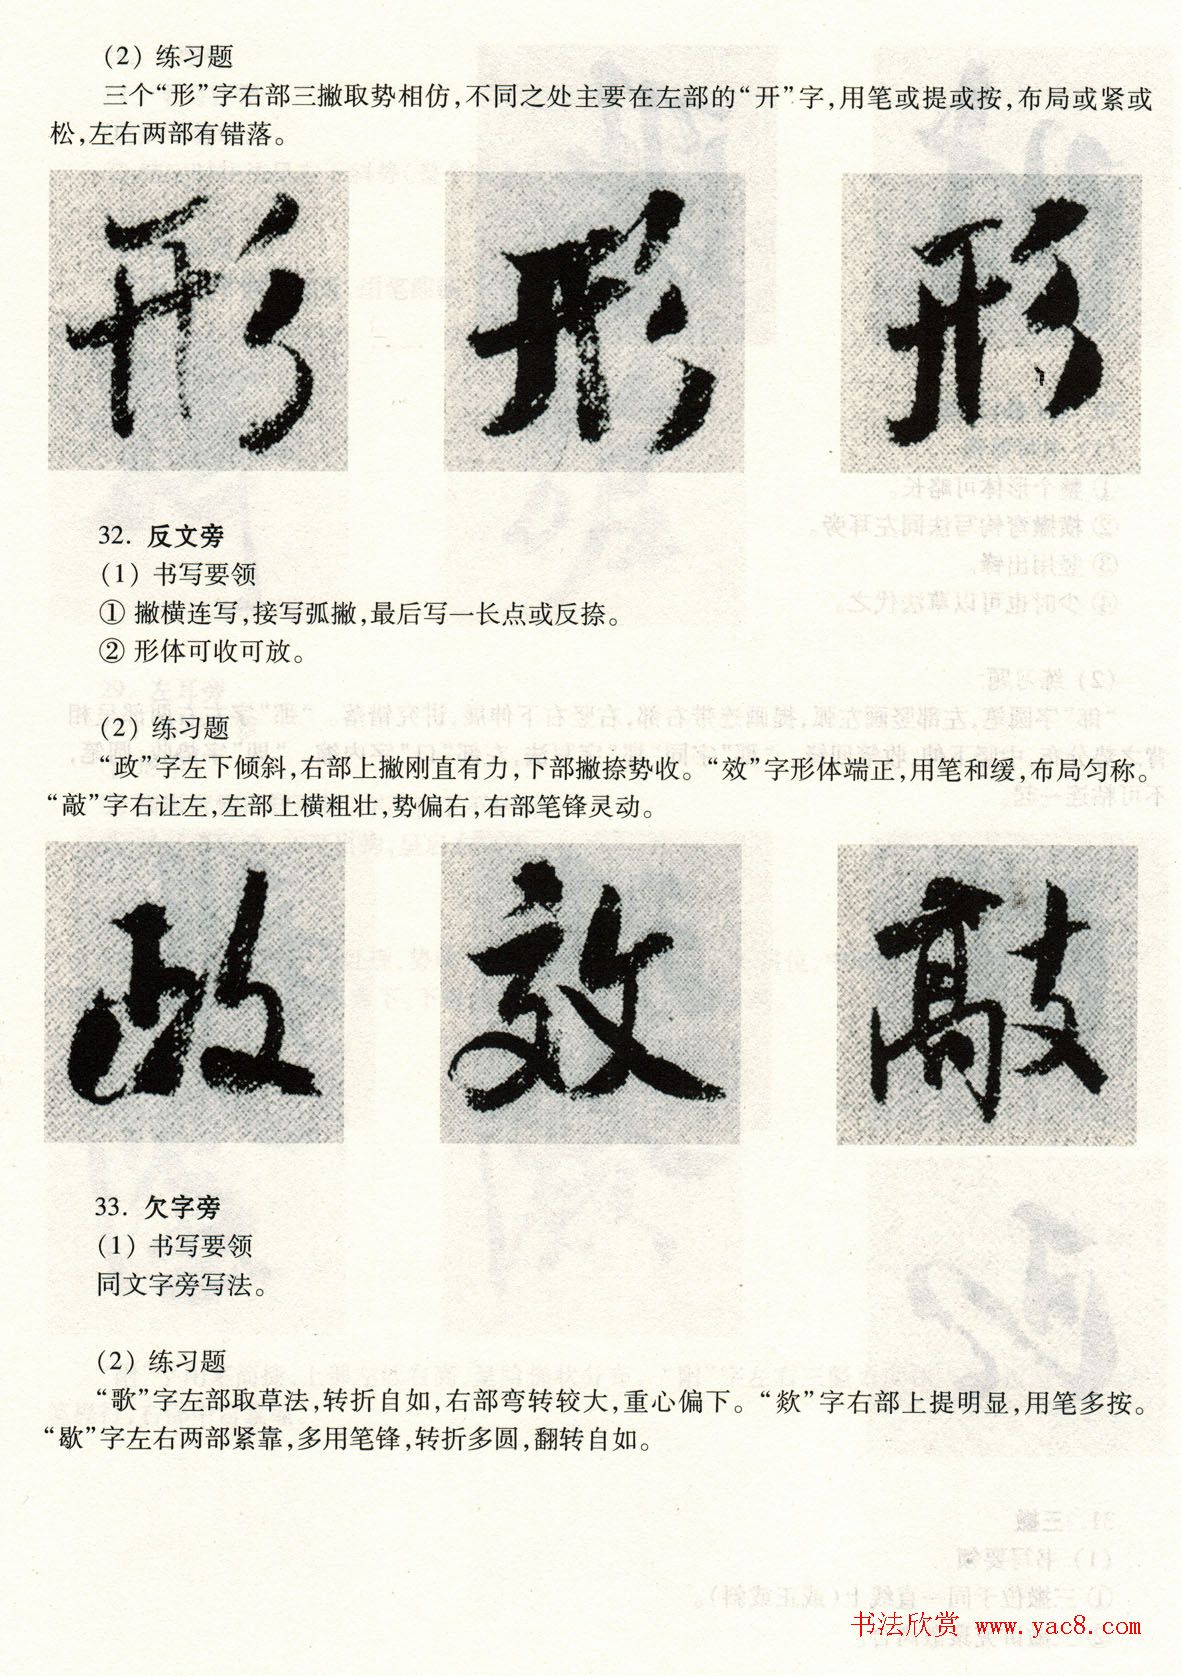 (2) 练习题
三个“形”字右部三撇取势相仿，不同之处主要在左部的“开”字，用笔或提或按，布局或紧或
松，左右两部有错落。
形 形 形
32. 反文旁
(1) 书写要领
① 撇横连写，接写弧撇，最后写一长点或反捺。
② 形体可收可放。
(2) 练习题
“政”字左下倾斜，右部上撇刚直有力，下部撇捺势收。“效”字形体端正，用笔和缓，布局匀称。
“敲”字右让左，左部上横粗壮，势偏右，右部笔锋灵动。
政 效 敲
33. 欠字旁
(1) 书写要领
同文字旁写法。
(2) 练习题
“歌”字左部取草法，转折自如，右部弯转较大，重心偏下。“欻”字右部上提明显，用笔多按。
“歇”字左右两部紧靠，多用笔锋，转折多圆，翻转自如。
书法欣赏 www.yac8.com